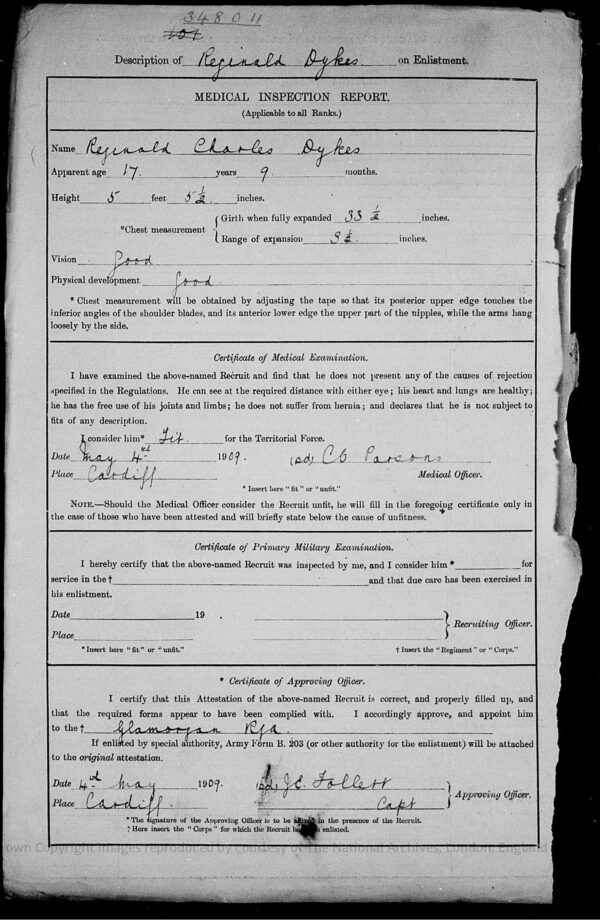 34801
Description of Reginald Dykes on Enlistment.
MEDICAL INSPECTION REPORT.
(Applicable to all Ranks.)
Name Reginald Charles Dykes
Apparent age 17 years 9 months.
Height 5 feet 5½ inches.
*Chest measurement { Girth when fully expanded 33 ½ inches.
Range of expansion 3½ inches.
Vision good
Physical development good
* Chest measurement will be obtained by adjusting the tape so that its posterior upper edge touches the
inferior angles of the shoulder blades, and its anterior lower edge the upper part of the nipples, while the arms hang
loosely by the side.
Certificate of Medical Examination.
I have examined the above-named Recruit and find that he does not present any of the causes of rejection
specified in the Regulations. He can see at the required distance with either eye; his heart and lungs are healthy;
he has the free use of his joints and limbs; he does not suffer from hernia; and declares that he is not subject to
fits of any description.
I consider him* Fit. for the Territorial Force.
Date May 4 1909. (sd) C B Parsons
Place Cardiff Medical Officer.
* Insert here "fit" or "unfit."
NOTE.—Should the Medical Officer consider the Recruit unfit, he will fill in the foregoing certificate only in
the case of those who have been attested and will briefly state below the cause of unfitness.
Certificate of Primary Military Examination.
I hereby certify that the above-named Recruit was inspected by me, and I consider him * for
service in the † and that due care has been exercised in
his enlistment.
Date 19 .
Place } Recruiting Officer.
* Insert here "fit" or "unfit." † Insert the "Regiment" or "Corps."
* Certificate of Approving Officer.
I certify that this Attestation of the above-named Recruit is correct, and properly filled up, and
that the required forms appear to have been complied with. I accordingly approve, and appoint him
to the † Glamorgan Rfa.
If enlisted by special authority, Army Form B. 203 (or other authority for the enlistment) will be attached
to the original attestation.
Date 4 May 1909. (sd) Follett
Place Cardiff. Capt } Approving Officer.
* The signature of the Approving Officer is to be in the presence of the Recruit.
† Here insert the "Corps" for which the Recruit enlisted.
own Copyright Images reproduced by courtesy of The National Archives, London, England